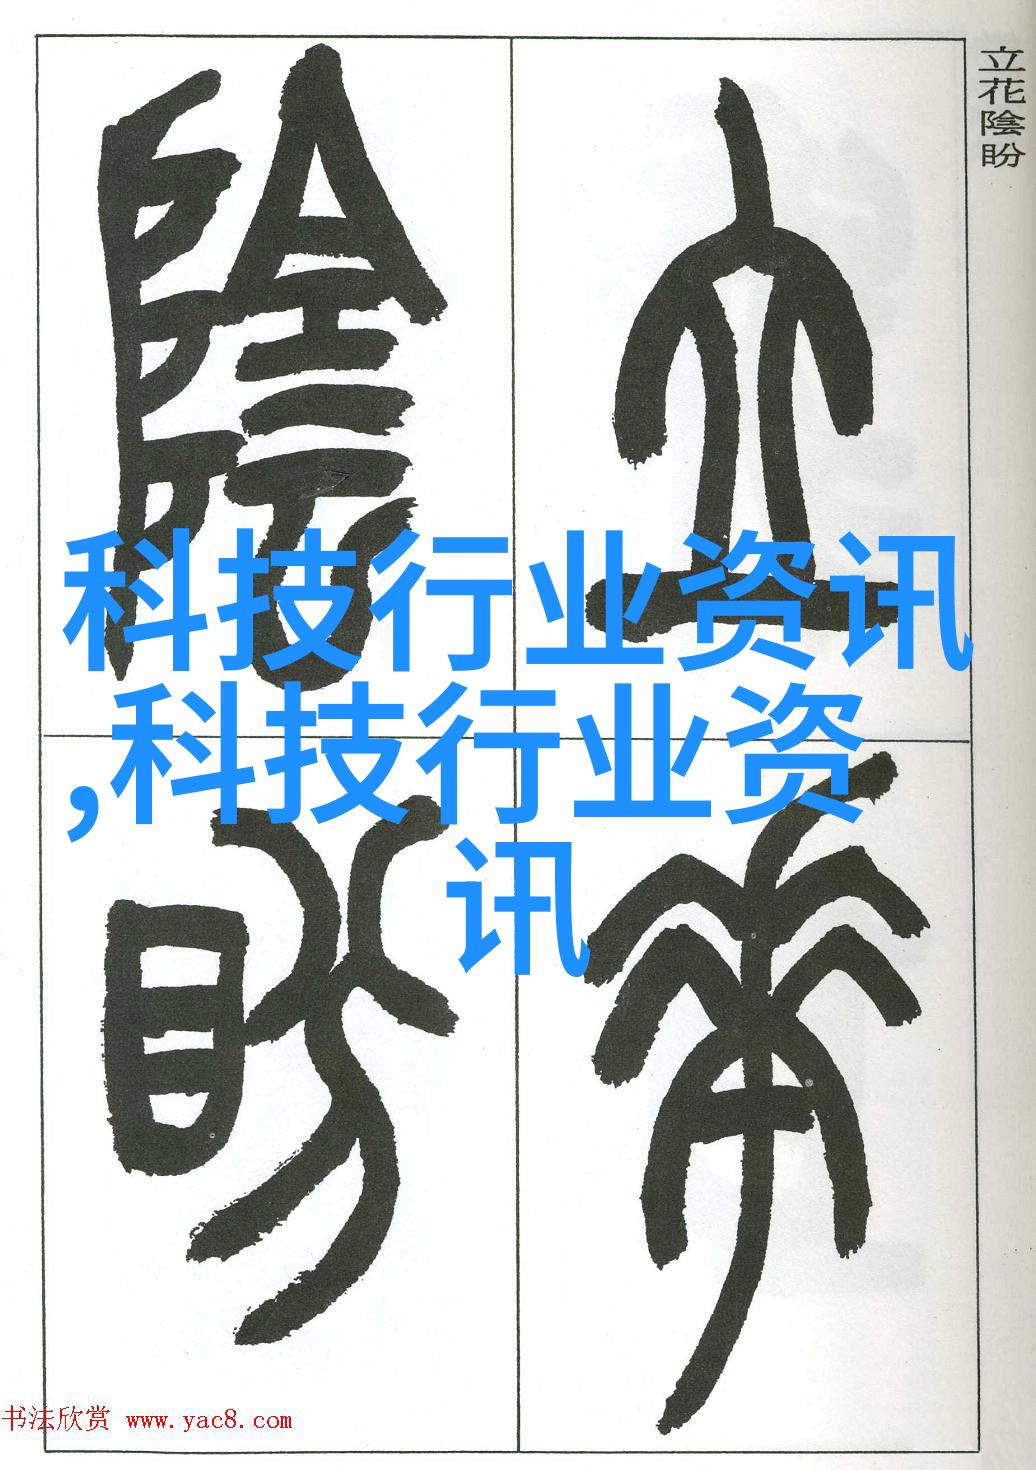 立花陰盼
立
花
陰
盼
科技行业资讯
,科技行业资
讯
书法欣赏 www.yac8.com